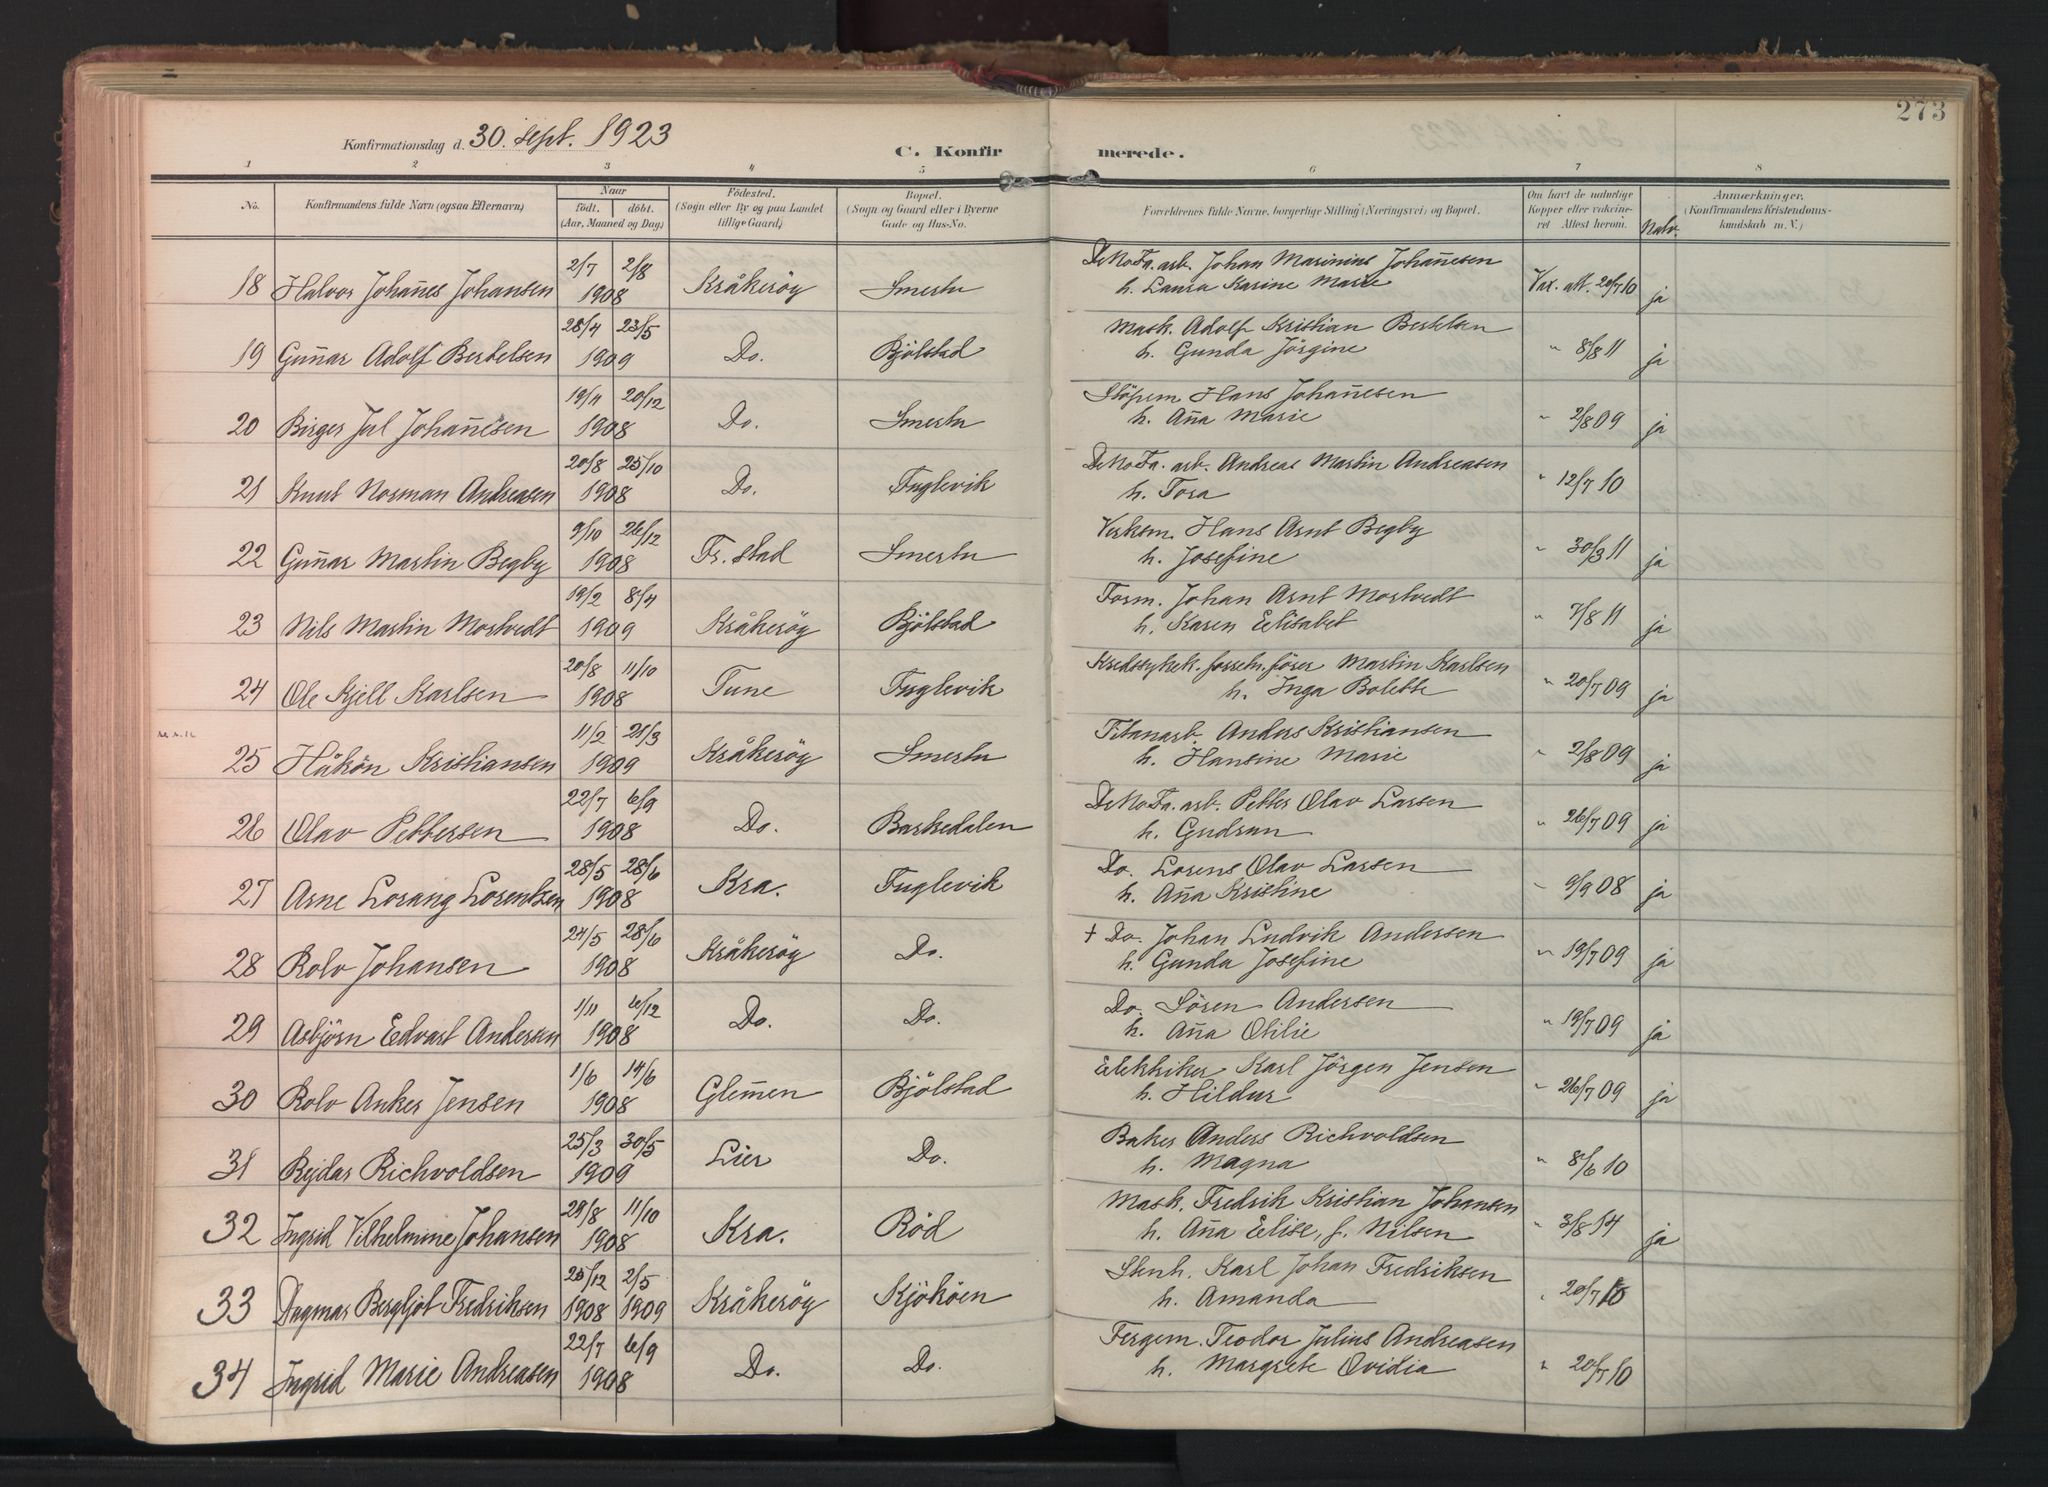 273
Konfirmationsdag d. 30. sept. 1923
C. Konfirmerede.
1 2 3 4 5 6 7 8
No. Konfirmandens fulde Navn (ogsaa Efternavn) Naar født. døbt. (Aar, Maaned og Dag) Fødested. (Sogn eller By og paa Landet tillige Gaard) Bopæl. (Sogn og Gaard eller i Byerne Gade og Hus-No. Forældrenes fulde Navne, borgerlige Stilling (Næringsvei) og Bopæl. Om havt de naturlige Kopper eller vakcineret Attest herom. Natv. Anmærkninger. (Konfirmandens Kristendomskundskab m. V.)
18 Halvor Johañes Johansen 2/7 2/8 1908 Kråkerøy Smertu DeNoFa. arb. Johan Marinius Johañesen
h. Laura Karine Marie Vax. att. 20/7 10 ja
19 Guñar Adolf Bertelsen 28/4 23/5 1909 Do. Bjölstad Mask. Adolf Kristian Bertelsen
h. Gunda Jörgine " 8/8 11 ja
20 Birger Jul Johañesen 19/4 20/12 1908 Do. Smertu Stöpem. Hans Johañesen
h. Aña Marie " 2/8 09 ja
21 Knut Norman Andreasen 20/8 25/10 1908 Do. Fuglevik DeNoFa. arb. Andreas Martin Andreasen
h. Tora " 12/7 10
22 Guñar Martin Begby 9/10 26/12 1908 Fr.stad Smertu Verksm. Hans Arnt Begby
h. Josefine " 30/3 11 ja
23 Nils Martin Mortvedt 19/2 8/4 1909 Kråkeröy Bjölstad Form. Johan Arnt Mortvedt
h. Karen Elisabet " 7/8 11 ja
24 Ole Kjell Karlsen 20/8 11/10 1908 Tune Fuglevik Kredssykek. forretn.förer Martin Karlsen
h. Inga Bolette " 20/7 09 ja
25 Håkon Kristiansen 11/2 21/3 1909 Kråkeröy Smertu Titanarb. Anders Kristiansen
h. Hansine Marie " 2/8 09 ja
26 Olav Pettersen 22/7 6/9 1908 Do. Barkedalen DeNoFa. arb. Petter Olav Larsen
h. Gudrun " 26/7 09 ja
27 Arne Lorang Lorentzen 28/5 28/6 1908 Kra. Fuglevik Do. Lorens Olav Larsen
h. Aña Kristine " 9/9 08 ja
28 Rolv Johansen 24/5 28/6 1908 Kråkeröy Do. + Do. Johan Ludvik Andersen
h. Gunda Josefine " 19/7 09 ja
29 Asbjörn Edvart Andersen 1/11 6/12 1908 Do. Do. Do. Sören Andersen
h. Aña Otilie " 19/7 09 ja
30 Rolv Anker Jensen 1/6 14/6 1908 Glem̃en Bjölstad Elektriker Karl Jörgen Jensen
h. Hildur " 26/7 09 ja
31 Rejdar Richvoldsen 25/3 30/5 1909 Lier Do. Baker Anders Richvoldsen
h. Magna " 8/6 10
32 Ingrid Vilhelmine Johansen 29/8 11/10 1908 Kra. Röd Mask. Fredrik Kristian Johansen
h. Aña Elise, f. Nilsen " 3/8 14 ja
33 Dagmar Bergljot Fredriksen 25/12 1908 2/5 1909 Kråkeröy Kjököen Stenh. Karl Johan Fredriksen
h. Amanda " 20/7 10
34 Ingrid Marie Andreasen 22/7 6/9 1908 Do. Do. Fergem. Teodor Julius Andreasen
h. Margrete Ovidia " 20/7 10